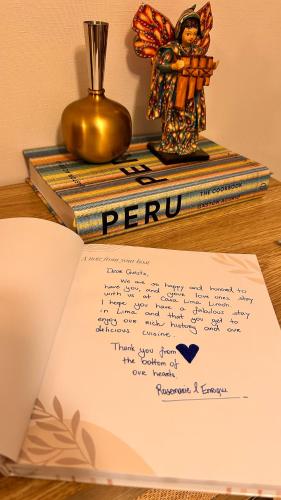 PERU
THE COOKBOOK
GASTÓN ACURIO
PERU
A note from your host
Dear Guests,
We are so happy and honored to
have you, and your love ones stay
with us at Casa Lima Limón.
I hope you have a fabulous stay
in Lima and that you get to
enjoy our rich history and our
delicious cuisine.
Thank you from
the bottom of
our hearts.
Rosemarie & Enrique